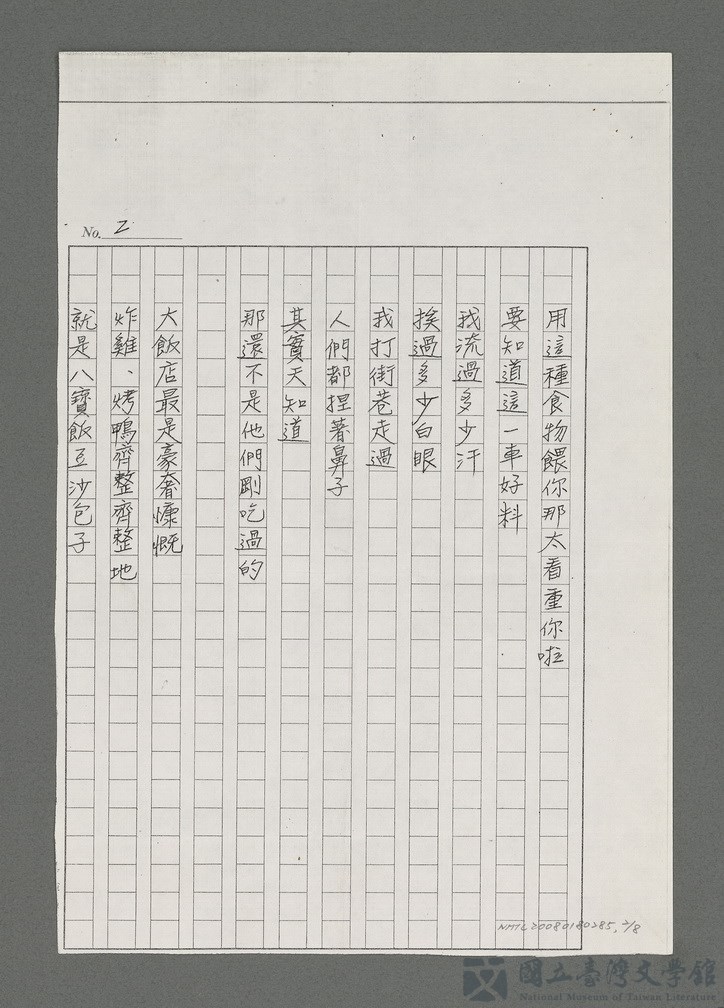 No. 2
用這種食物餵你那太看重你啦
要知道這一車好料
我流過多少汗
挨過多少白眼
我打街巷走過
人們都捏著鼻子
其實天知道
那還不是他們剛吃過的
大飯店最是豪奢慷慨
炸雞、烤鴨齊整齊整地
就是八寶飯豆沙包子
NMTL20080180285, 2/8
國立臺灣文學館
National Museum of Taiwan Literature